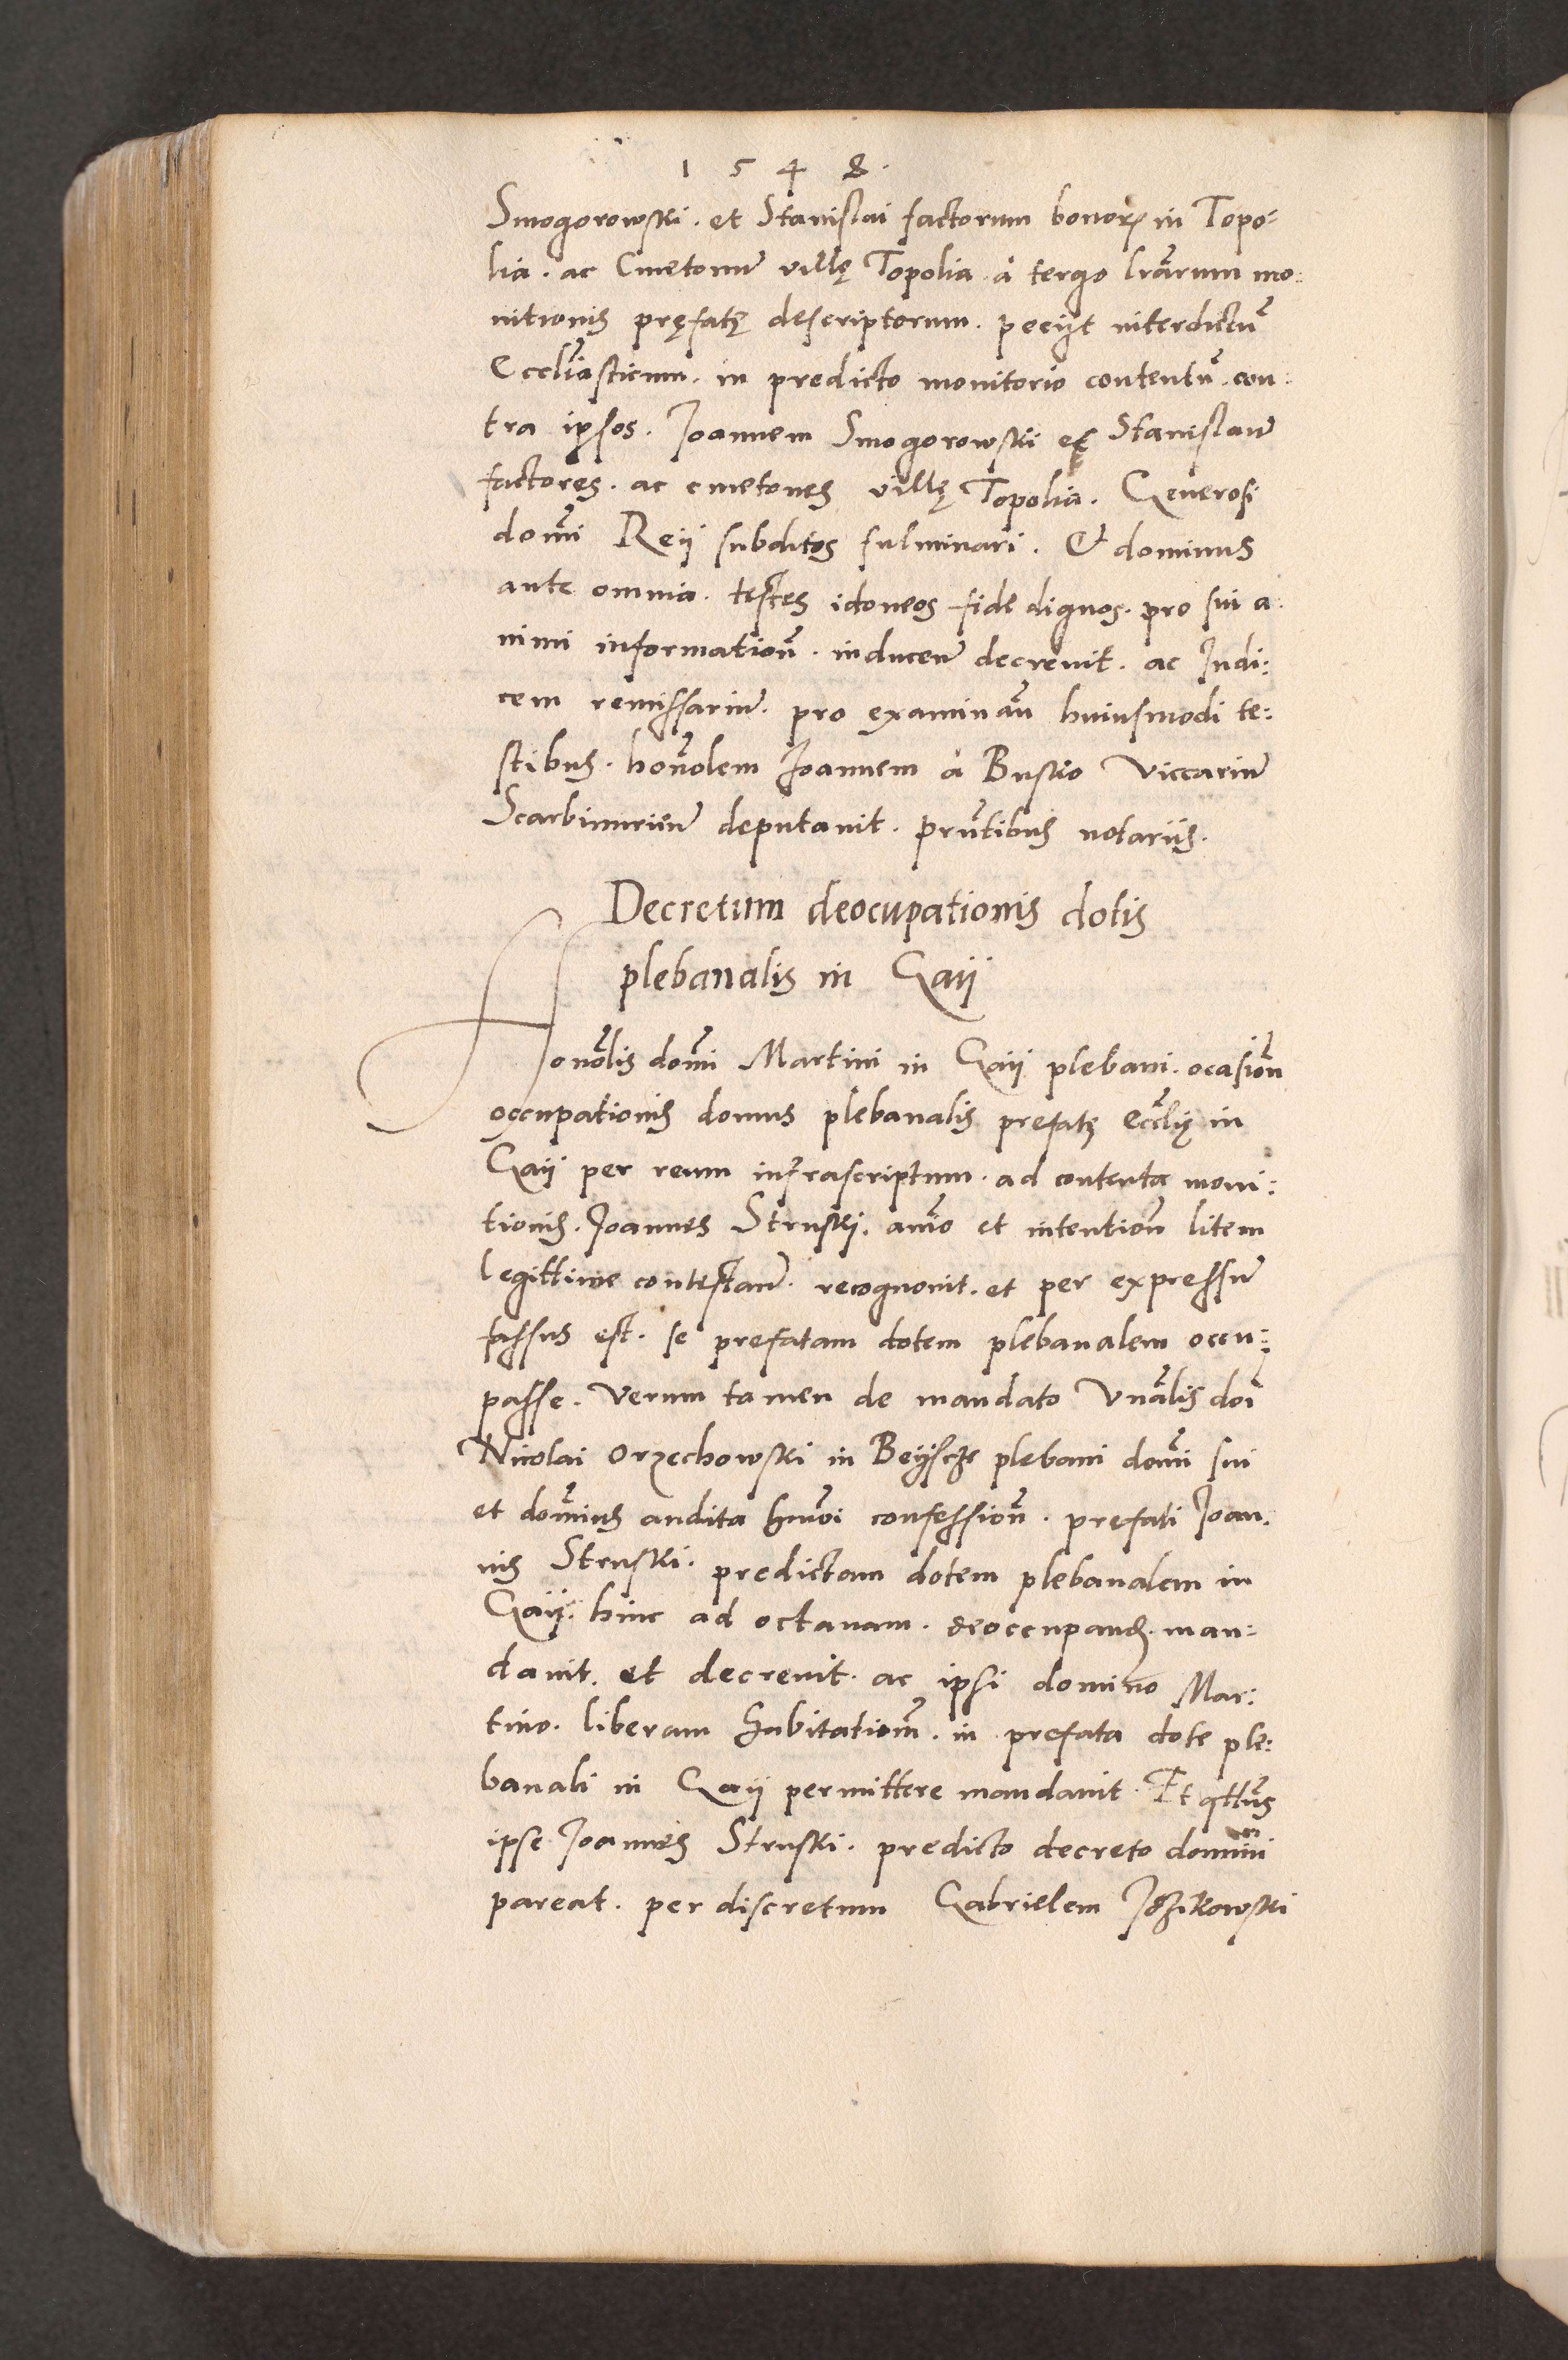 1 5 4 8.
Smogorowski. et Stanislai factorum bonorꝝ in Topo:
lia. ac Cmetonum villę Topolia à tergo lr̃arum mo:
nitionis pręfatę descriptorum. peciyt interdictũ
Eccl̃iasticum. in predicto monitorio contentũ. con:
tra ipsos. Joannem Smogorowski et Stanislaum
factores. ac cmetones villę Topolia. Generosi
domĩ Reij subditos fulminari. Et dominus
ante omnia. testes idoneos fide dignos. pro sui a
nimi informatioñ. inducend̃ decrevit. ac Judi:
cem remissarium. pro examinañ huiusmodi te:
stibus. hoñolem Joannem à Busko Viccarium
Scarbimirieñ deputavit. pñtibus notariis.
Decretum deocupationis dotis
plebanalis in Gaij
Honõlis domĩ Martini in Gaij plebani. ocasioñ
occupationis domus plebanalis prefatę eccl̃ię in
Gaij per reum infrascriptum. ad contenta moni:
tionis. Joannes Struski. anĩo et intentioñ litem
legittime contestand̃. recognovit. et per expressum
fassus est. se prefatam dotem plebanalem occu:
passe. Verum tamen de mandato Vnãlis doĩ
Nicolai Orzechowski in Beijscze plebani domĩ sui
et domĩus audita huiõi confessioñ. prefati Joan:
nis Struski. predictam dotem plebanalem in
Gaij. hinc ad octavam. deoccupand̃. man:
davit. et decrevit. ac ipsi domino Mar:
tino. liberam habitatioñ. in prefata dote ple:
banali in Gaij permittere mandavit. Et qtt̃us
ipse Joannes Struski. predicto decreto domini
pareat. per discretum Gabrielem Jozikowski